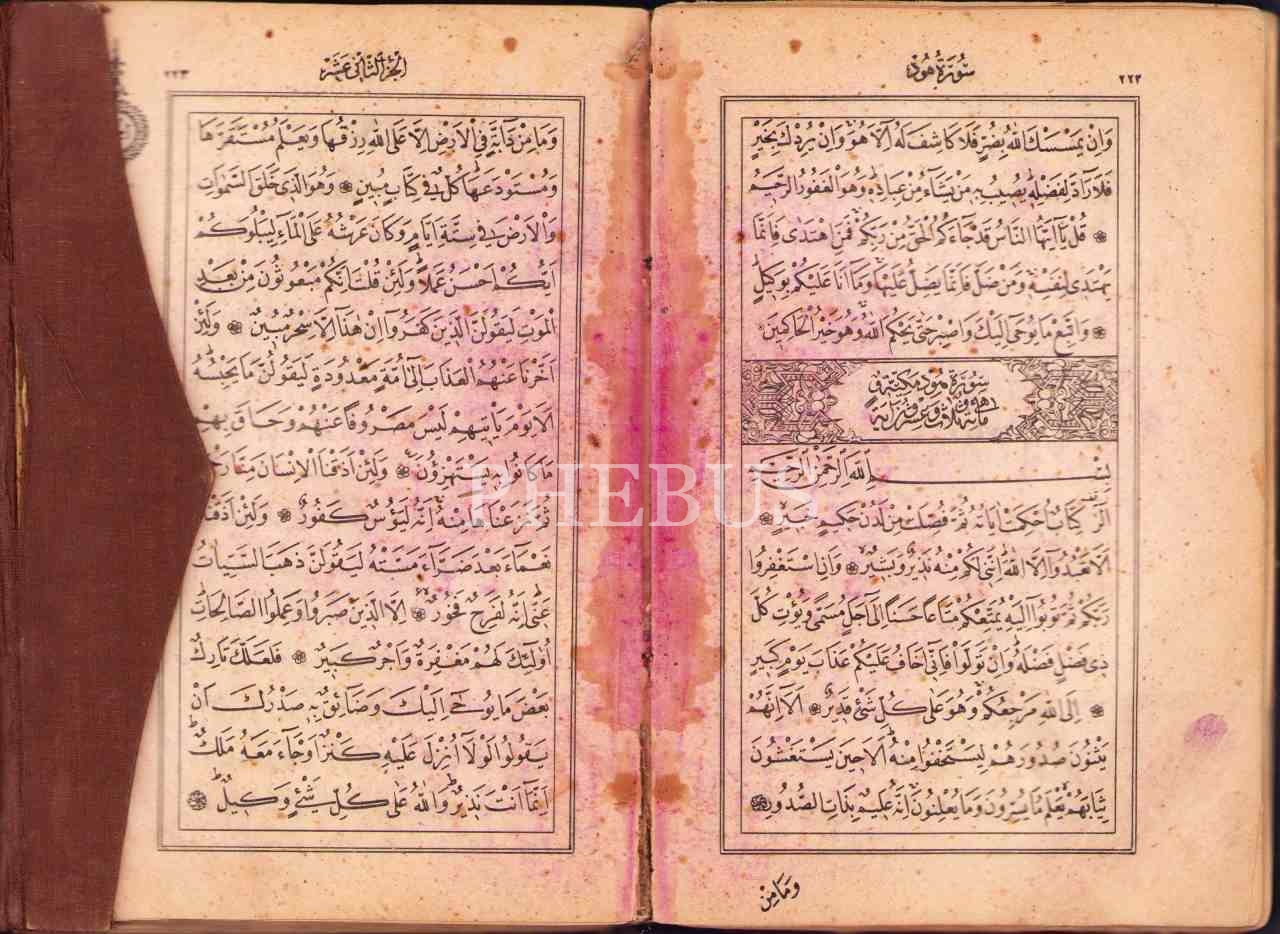 ٢٢٢
سُورَةُ هُودٍ
وَاِنْ يَمْسَسْكَ اللّٰهُ بِضُرٍّ فَلَا كَاشِفَ لَهُٓ اِلَّا هُوَ وَاِنْ يُرِدْكَ بِخَيْرٍ
فَلَا رَٓادَّ لِفَضْلِهِ يُصِيبُ بِهِ مَنْ يَشَٓاءُ مِنْ عِبَادِهِ وَهُوَ الْغَفُورُ الرَّحِيمُ
قُلْ يَٓا اَيُّهَا النَّاسُ قَدْ جَٓاءَكُمُ الْحَقُّ مِنْ رَبِّكُمْ فَمَنِ اهْتَدٰى فَاِنَّمَا
يَهْتَدِى لِنَفْسِهِ وَمَنْ ضَلَّ فَاِنَّمَا يَضِلُّ عَلَيْهَا وَمَٓا اَنَا۬ عَلَيْكُمْ بِوَكِيلٍ
وَاتَّبِعْ مَا يُوحٰٓى اِلَيْكَ وَاصْبِرْ حَتّٰى يَحْكُمَ اللّٰهُ وَهُوَ خَيْرُ الْحَاكِمِينَ
سُورَةُ هُودٍ مَكِّيَّةٌ وَهِىَ
مِائَةٌ وَثَلَاثٌ وَعِشْرُونَ اٰيَةً
بِسْمِ اللّٰهِ الرَّحْمٰنِ الرَّحِيمِ
الٓرٰ كِتَابٌ اُحْكِمَتْ اٰيَاتُهُ ثُمَّ فُصِّلَتْ مِنْ لَدُنْ حَكِيمٍ خَبِيرٍ
اَلَّا تَعْبُدُٓوا اِلَّا اللّٰهَ اِنَّنِى لَكُمْ مِنْهُ نَذِيرٌ وَبَشِيرٌ وَاَنِ اسْتَغْفِرُوا
رَبَّكُمْ ثُمَّ تُوبُٓوا اِلَيْهِ يُمَتِّعْكُمْ مَتَاعًا حَسَنًا اِلٰٓى اَجَلٍ مُسَمًّى وَيُؤْتِ كُلَّ
ذِى فَضْلٍ فَضْلَهُ وَاِنْ تَوَلَّوْا فَاِنِّٓى اَخَافُ عَلَيْكُمْ عَذَابَ يَوْمٍ كَبِيرٍ
اِلَى اللّٰهِ مَرْجِعُكُمْ وَهُوَ عَلٰى كُلِّ شَىْءٍ قَدِيرٌ اَلَٓا اِنَّهُمْ
يَثْنُونَ صُدُورَهُمْ لِيَسْتَخْفُوا مِنْهُ اَلَا حِينَ يَسْتَغْشُونَ
ثِيَابَهُمْ يَعْلَمُ مَا يُسِرُّونَ وَمَا يُعْلِنُونَ اِنَّهُ عَلِيمٌ بِذَاتِ الصُّدُورِ
وَمَا مِنْ
اَلْجُزْءُ الثَّانِى عَشَرَ
٢٢٣
وَمَا مِنْ دَٓابَّةٍ فِى الْاَرْضِ اِلَّا عَلَى اللّٰهِ رِزْقُهَا وَيَعْلَمُ مُسْتَقَرَّهَا
وَمُسْتَوْدَعَهَا كُلٌّ فِى كِتَابٍ مُبِينٍ وَهُوَ الَّذِى خَلَقَ السَّمٰوَاتِ
وَالْاَرْضَ فِى سِتَّةِ اَيَّامٍ وَكَانَ عَرْشُهُ عَلَى الْمَٓاءِ لِيَبْلُوَكُمْ
اَيُّكُمْ اَحْسَنُ عَمَلًا وَلَئِنْ قُلْتَ اِنَّكُمْ مَبْعُوثُونَ مِنْ بَعْدِ
الْمَوْتِ لَيَقُولَنَّ الَّذِينَ كَفَرُٓوا اِنْ هٰذَٓا اِلَّا سِحْرٌ مُبِينٌ وَلَئِنْ
اَخَّرْنَا عَنْهُمُ الْعَذَابَ اِلٰٓى اُمَّةٍ مَعْدُودَةٍ لَيَقُولُنَّ مَا يَحْبِسُهُ
اَلَا يَوْمَ يَأْتِيهِمْ لَيْسَ مَصْرُوفًا عَنْهُمْ وَحَاقَ بِهِمْ
مَا كَانُوا بِهِ يَسْتَهْزِؤُنَ وَلَئِنْ اَذَقْنَا الْاِنْسَانَ مِنَّا رَحْمَةً
ثُمَّ نَزَعْنَاهَا مِنْهُ اِنَّهُ لَيَؤُسٌ كَفُورٌ وَلَئِنْ اَذَقْنَاهُ
نَعْمَٓاءَ بَعْدَ ضَرَّٓاءَ مَسَّتْهُ لَيَقُولَنَّ ذَهَبَ السَّيِّاٰتُ
عَنِّى اِنَّهُ لَفَرِحٌ فَخُورٌ اِلَّا الَّذِينَ صَبَرُوا وَعَمِلُوا الصَّالِحَاتِ
اُولٰٓئِكَ لَهُمْ مَغْفِرَةٌ وَاَجْرٌ كَبِيرٌ فَلَعَلَّكَ تَارِكٌ
بَعْضَ مَا يُوحٰٓى اِلَيْكَ وَضَٓائِقٌ بِهِ صَدْرُكَ اَنْ
يَقُولُوا لَوْلَٓا اُنْزِلَ عَلَيْهِ كَنْزٌ اَوْ جَٓاءَ مَعَهُ مَلَكٌ
اِنَّمَٓا اَنْتَ نَذِيرٌ وَاللّٰهُ عَلٰى كُلِّ شَىْءٍ وَكِيلٌ
PHEBUS